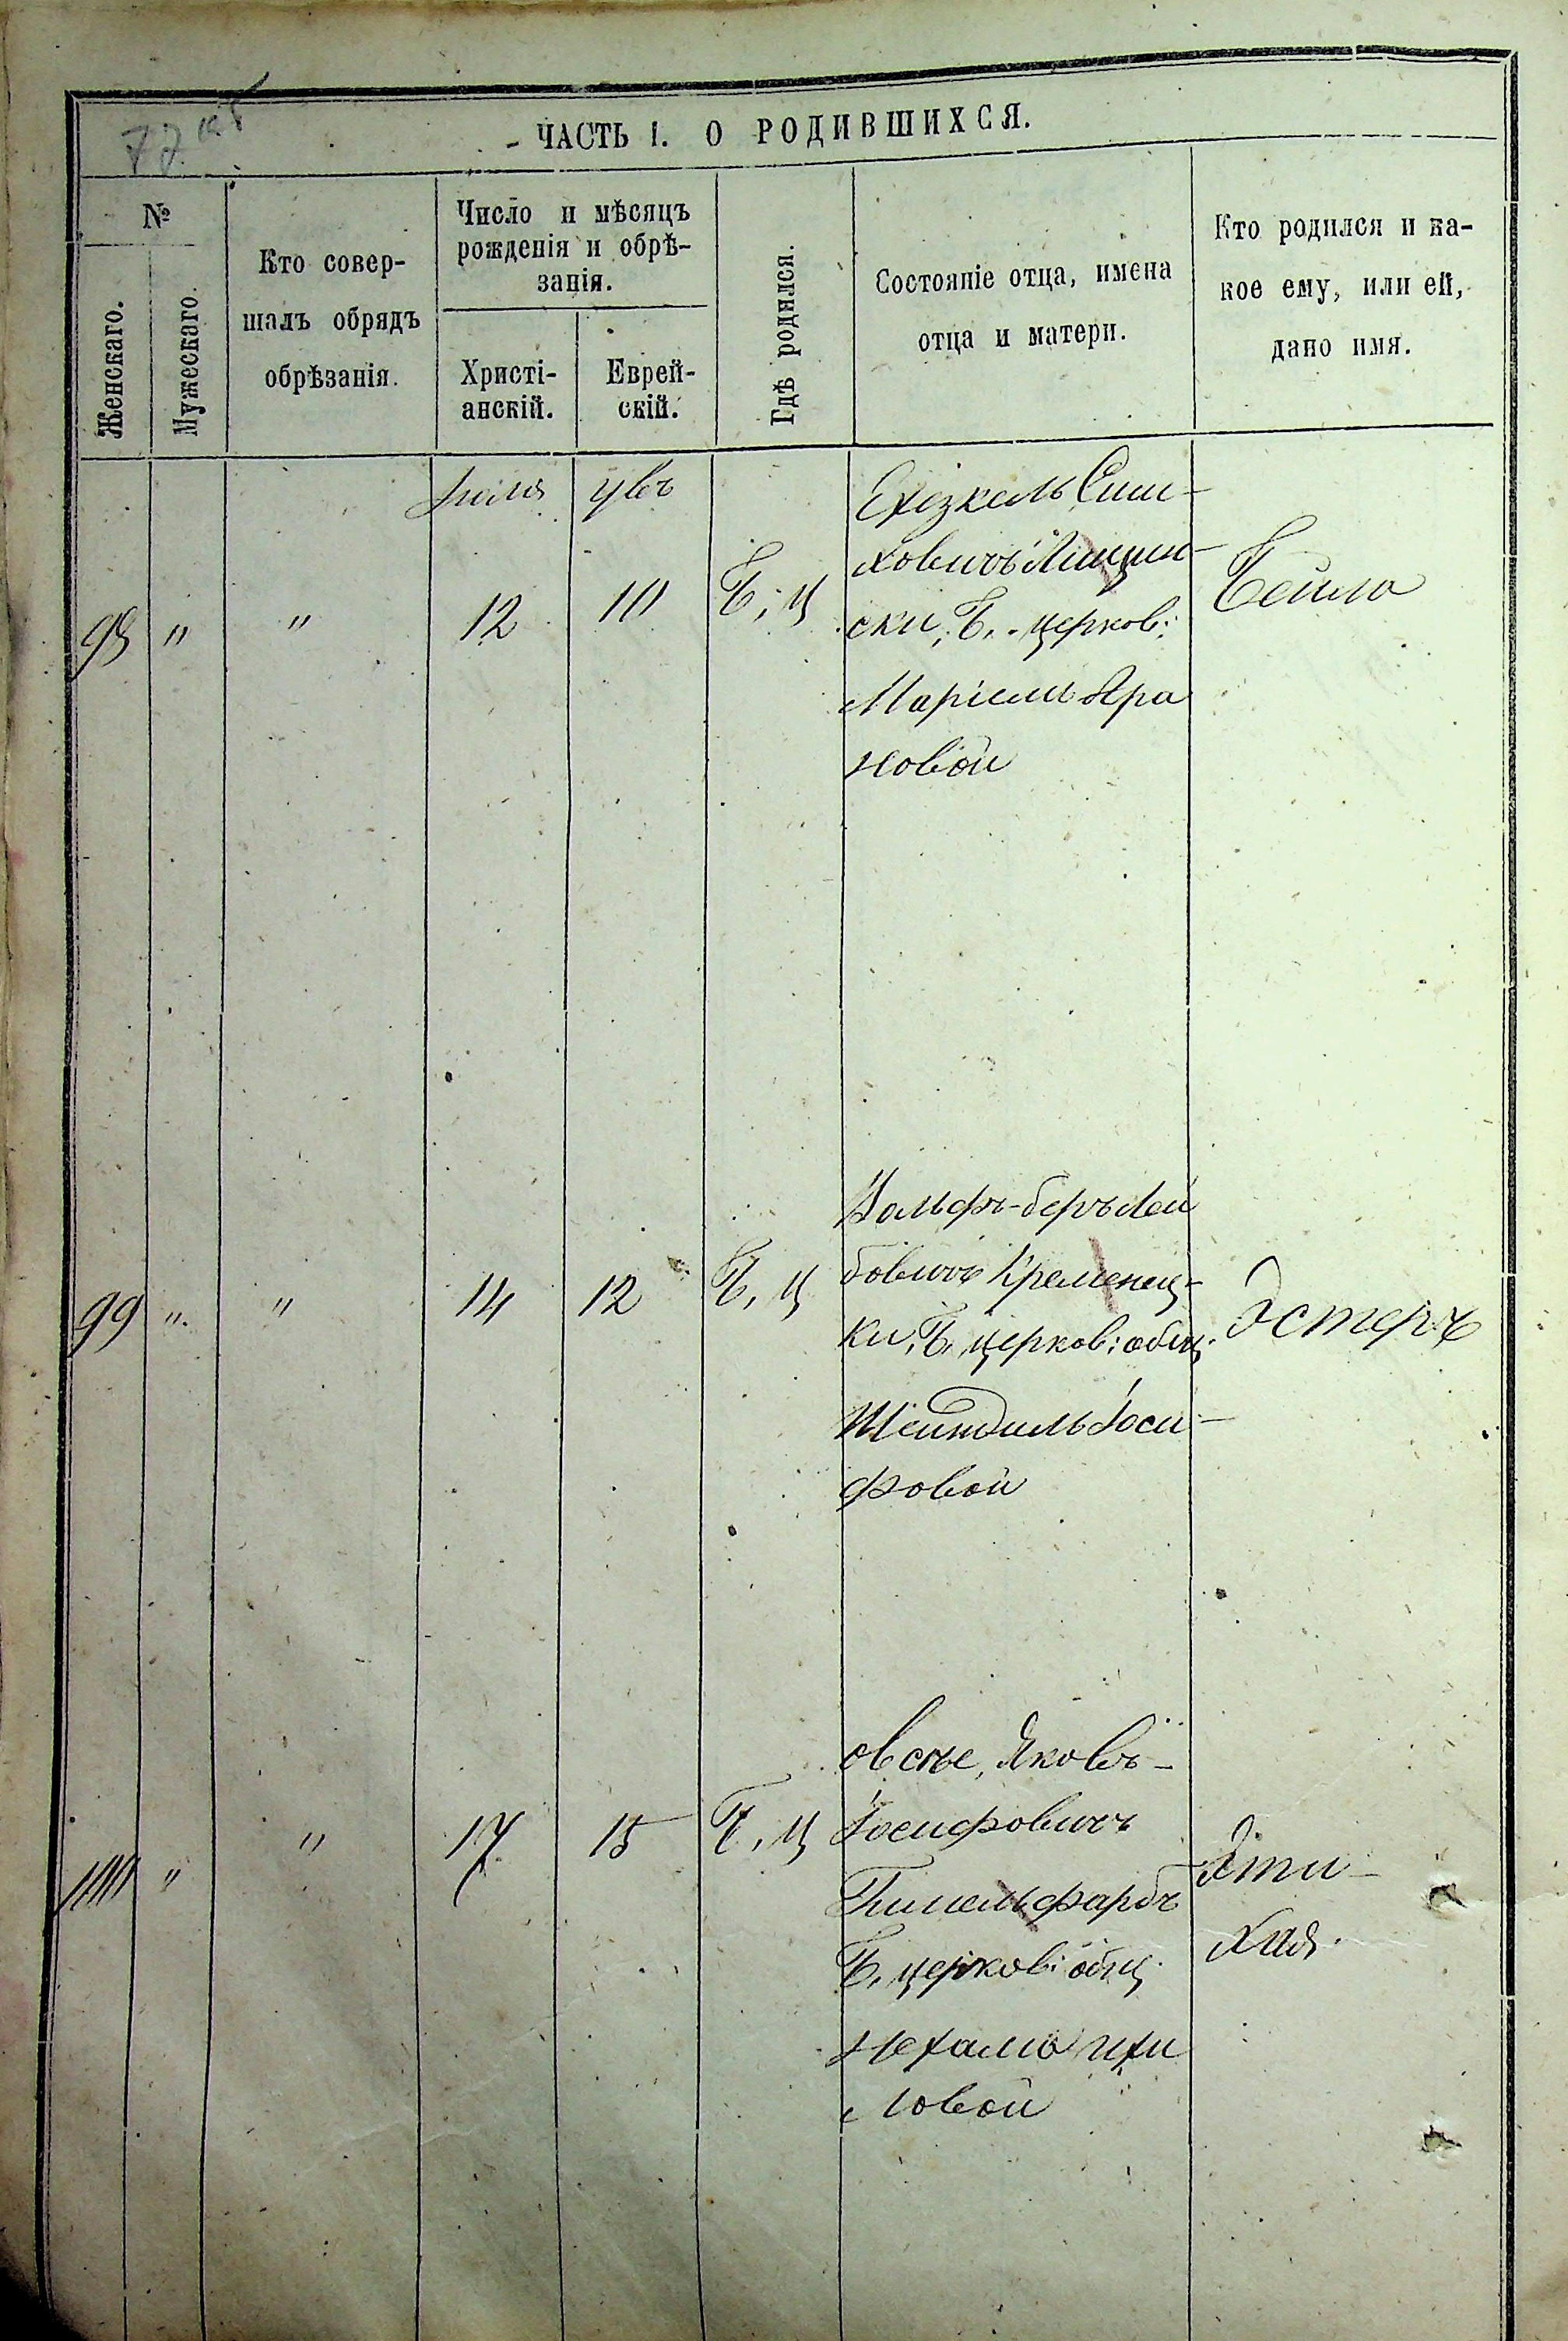 72 об
ЧАСТЬ I. О РОДИВШИХСЯ.
№
Женскаго.
Мужескаго.
Кто совер-
шалъ обрядъ
обрѣзанія.
Число и мѣсяцъ
рожденія и обрѣ-
занія.
Христі-
анскій.
Еврей-
скій.
Гдѣ родился.
Состояніе отца, имена
отца и матери.
Кто родился и ка-
кое ему, или ей,
дано имя.
98 " " 12 10 Б, ц
Ехезкель
ховичъ Лищин-
ски, Б. церков:
Маріели Аро
новой
Бейла
99 " " 14 12 Б, ц
Вольфъ-беръ Лей
бовичъ Кременец-
ки, Б. церков: общ.
Шейндиль Іоси-
фовой
Эстеръ
100 " " 17 15 Б, ц
овсѣе, Яковъ-
Іосифовичъ
Гимельфарбъ
Б. церков: общ
Нехама
ловой
Эти-
хая